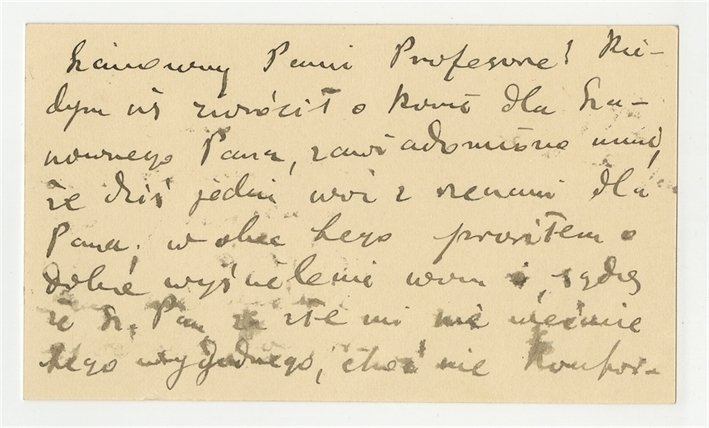 Szanowny Panie Profesorze! Kie-
dym się zwrócił o konie dla Sza-
nownego Pana, zawiadomiono mnie,
że dziś jedzie wóz z
Pana; wobec tego prosiłem o
dobre wysłanie wozu i sądzę
że Sz. Pan za złe mi nie weźmie
tego wygodnego, choć nie komfor-